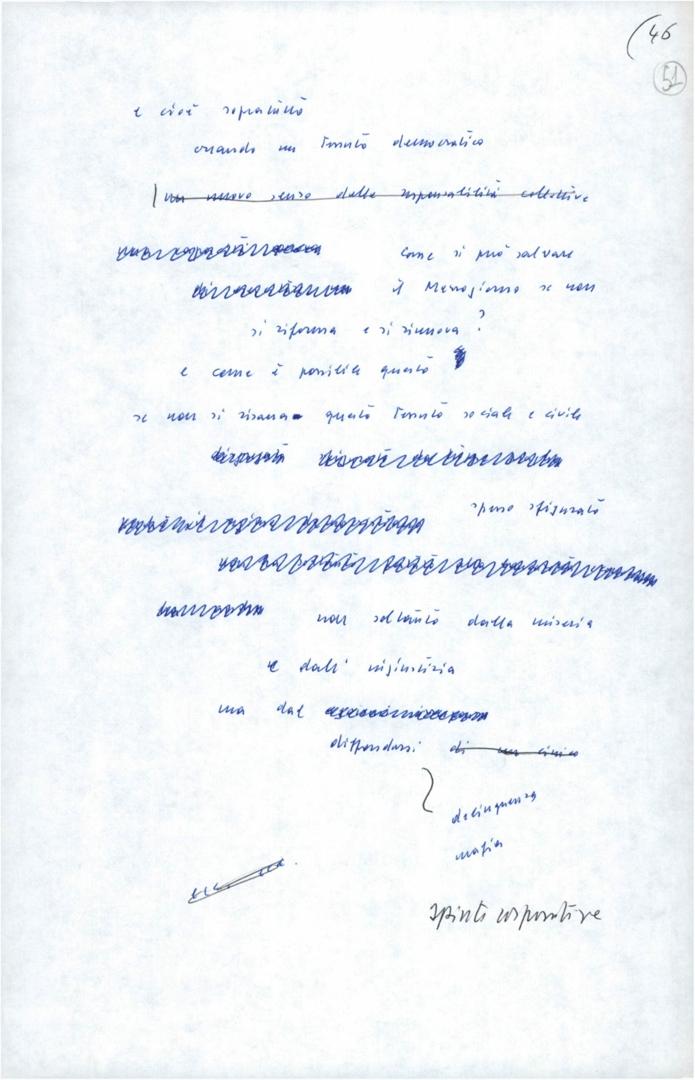 (46
51
e cioè sopratutto
creando un tessuto democratico
un nuovo senso della responsabilità collettiva
come si può salvare
il Mezzogiorno se non
si riforma e si rinnova?
e come è possibile questo
se non si risana questo tessuto sociale e civile
spesso sfigurato
non soltanto dalla miseria
e dall'ingiustizia
ma dal
diffondersi di un cinico
delinquenza
mafia
spinte corporative